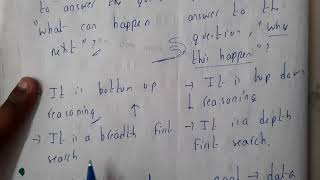 to answer the
"what can happen
next"?
It is bottom up
reasoning
→ It is a breadth first
search
answer to the
question, "Why
this happen"?
→ It is top down
reasoning
→ It is a depth
first search.
→ data